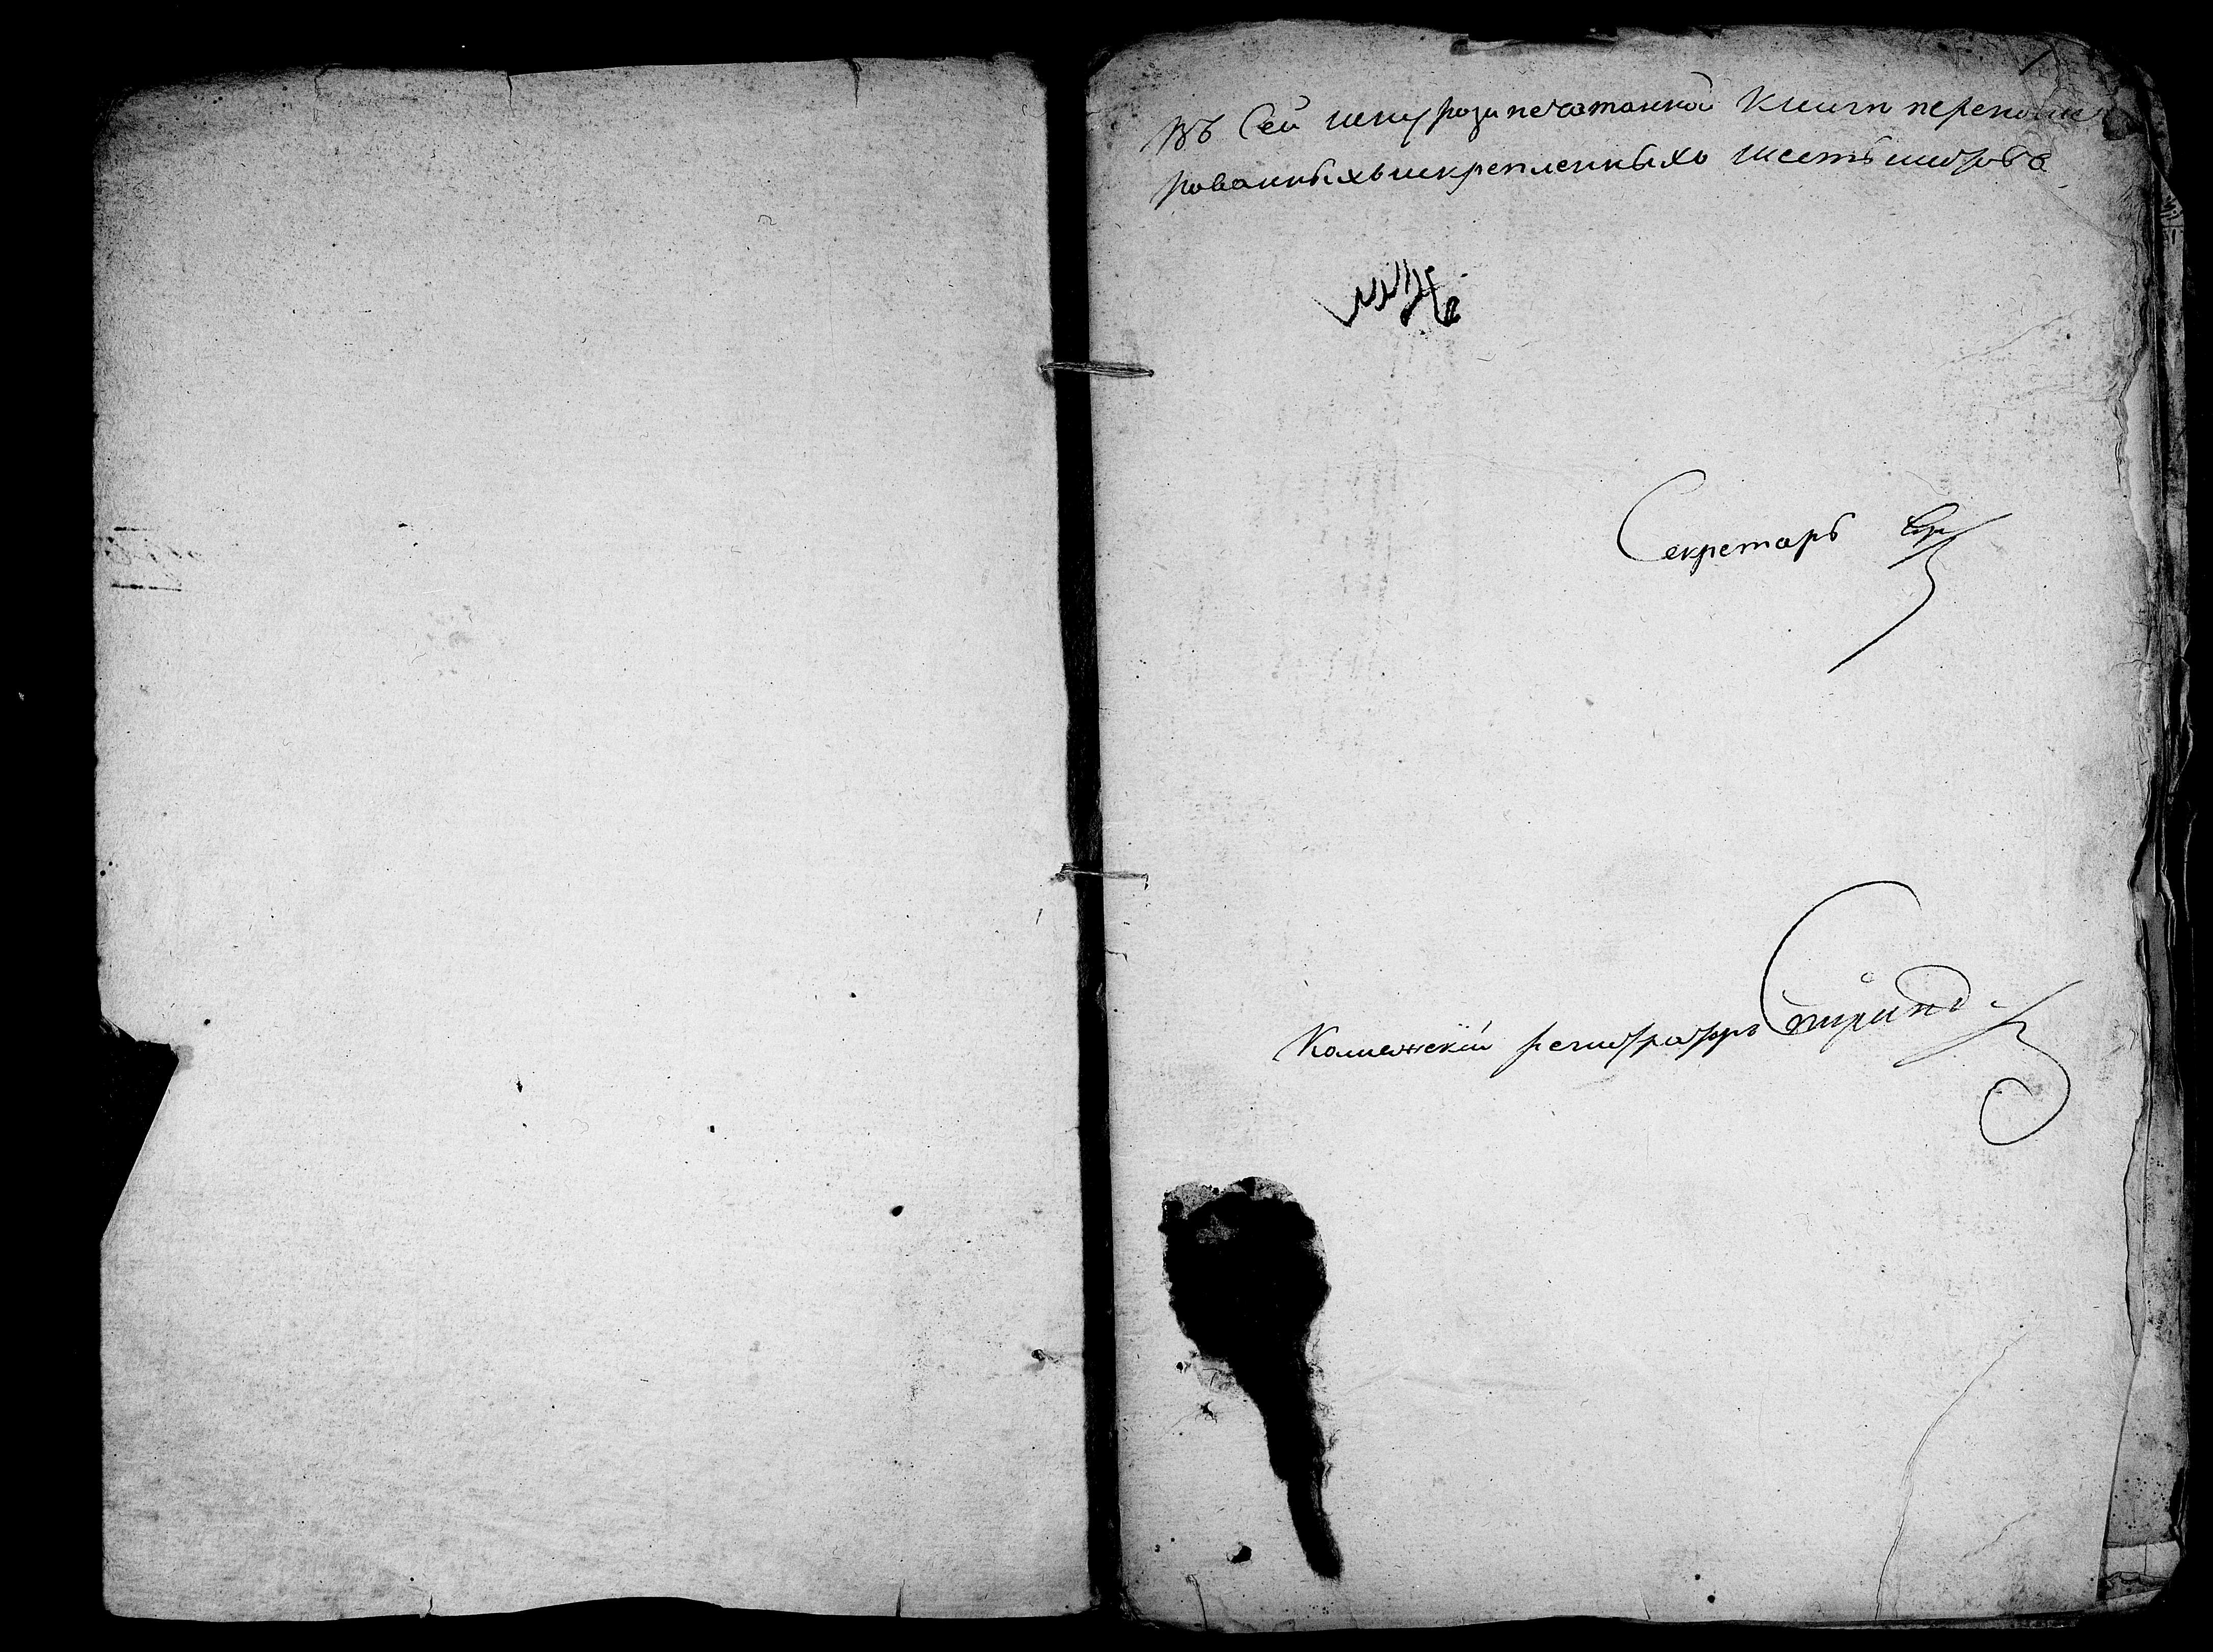 1
Въ Сей шнурозапечатанной Книги перенуме
рованныхъ искрепленныхъ шесть листовъ
Секретарь
Коллежскій регистраторъ